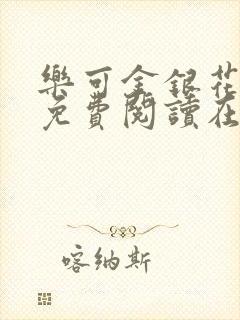 樂可金銀花
免費閱讀在
喀納斯